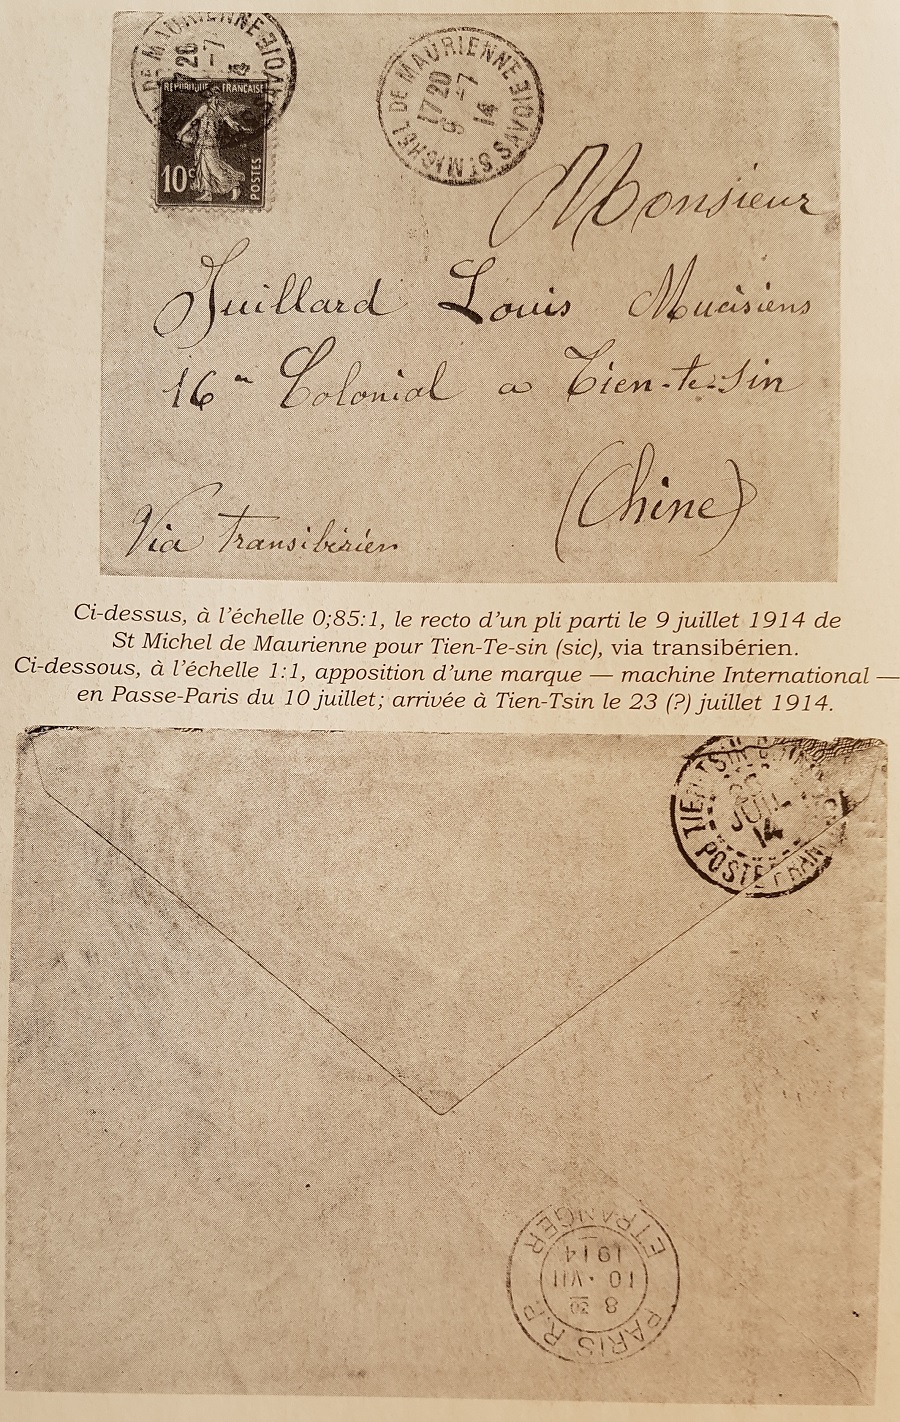 DE MAURIENNE SAVOIE
17 20
-7
14
RÉPUBLIQUE FRANÇAISE
10c
POSTES
ST MICHEL DE MAURIENNE SAVOIE
17 20
9 -7
14
Monsieur
Juillard Louis Mucisiens
16me Colonial a Tien-te-sin
(Chine)
Via Transibérien
Ci-dessus, à l'échelle 0;85:1, le recto d'un pli parti le 9 juillet 1914 de
St Michel de Maurienne pour Tien-Te-sin (sic), via transibérien.
Ci-dessous, à l'échelle 1:1, apposition d'une marque — machine International —
en Passe-Paris du 10 juillet; arrivée à Tien-Tsin le 23 (?) juillet 1914.
TIEN-TSIN
JUIL
14
POSTE FRAN
PARIS R.P.
8 30
10 •VII
1914
ETRANGER